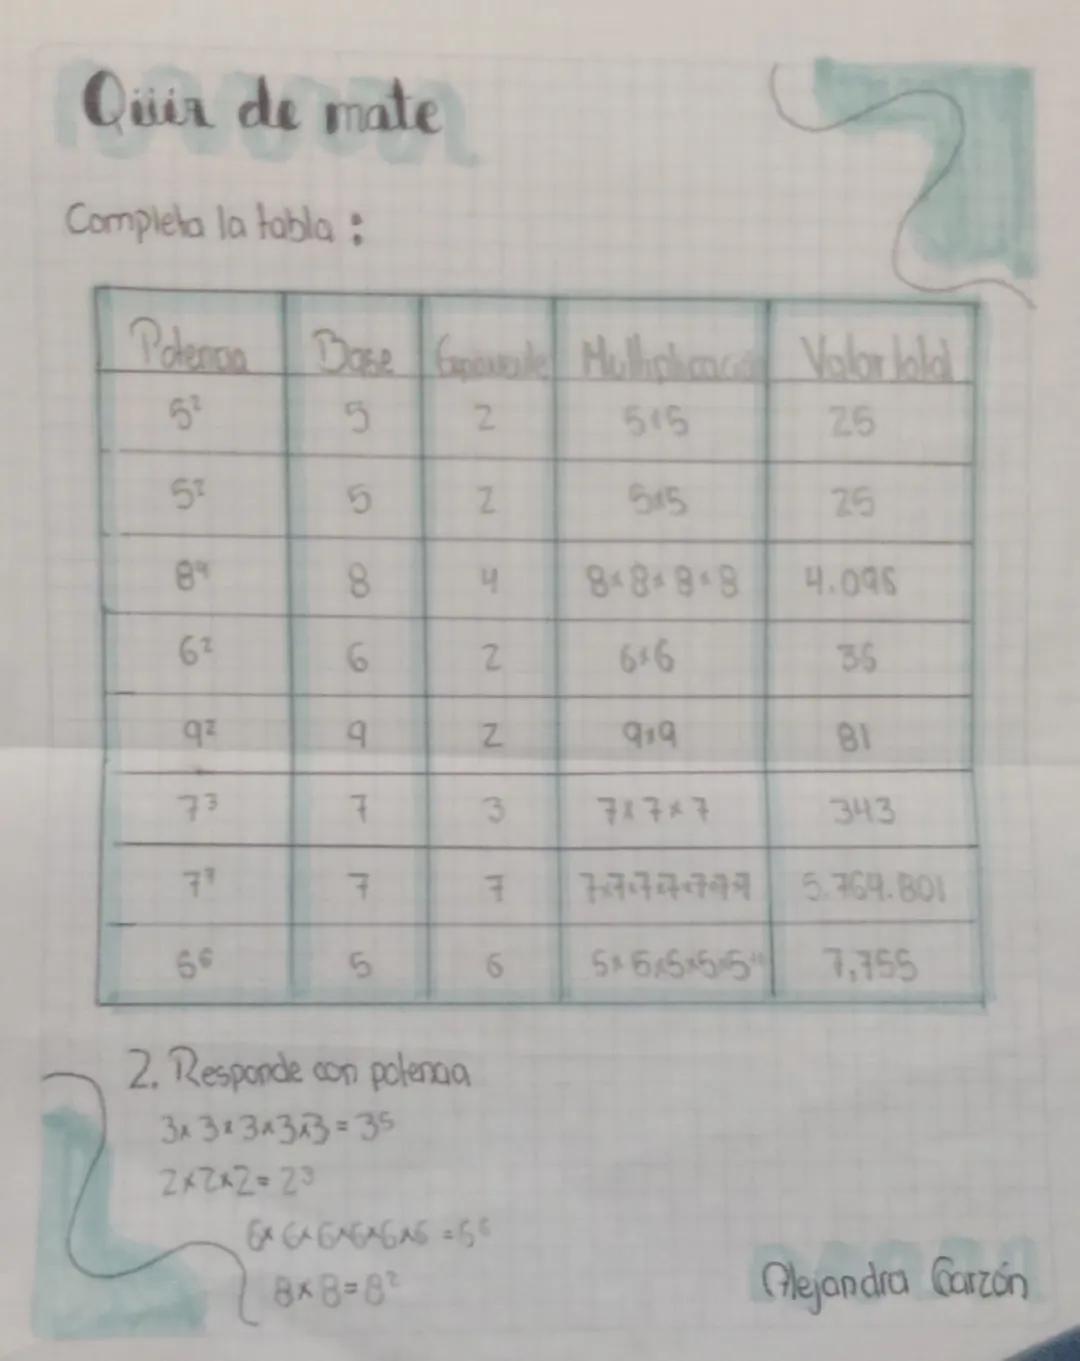 Qüiz de mate
Completa la tabla :
Potencia Base Exponente Multiplicació Valor total
5² 5 2 5x5 25
5² 5 2 5x5 25
8⁴ 8 4 8x8x8x8 4.096
6² 6 2 6x6 36
9² 9 2 9x9 81
7³ 7 3 7x7x7 343
7⁷ 7 7 7x7x7x7x7x7x7 5.769.801
5⁶ 5 6 5x5x5x5x5 7,755
2. Responde con potencia
3x3x3x3x3=3⁵
2x2x2=2³
6x6x6x6x6x6
8x8=8²
Alejandra Garzón